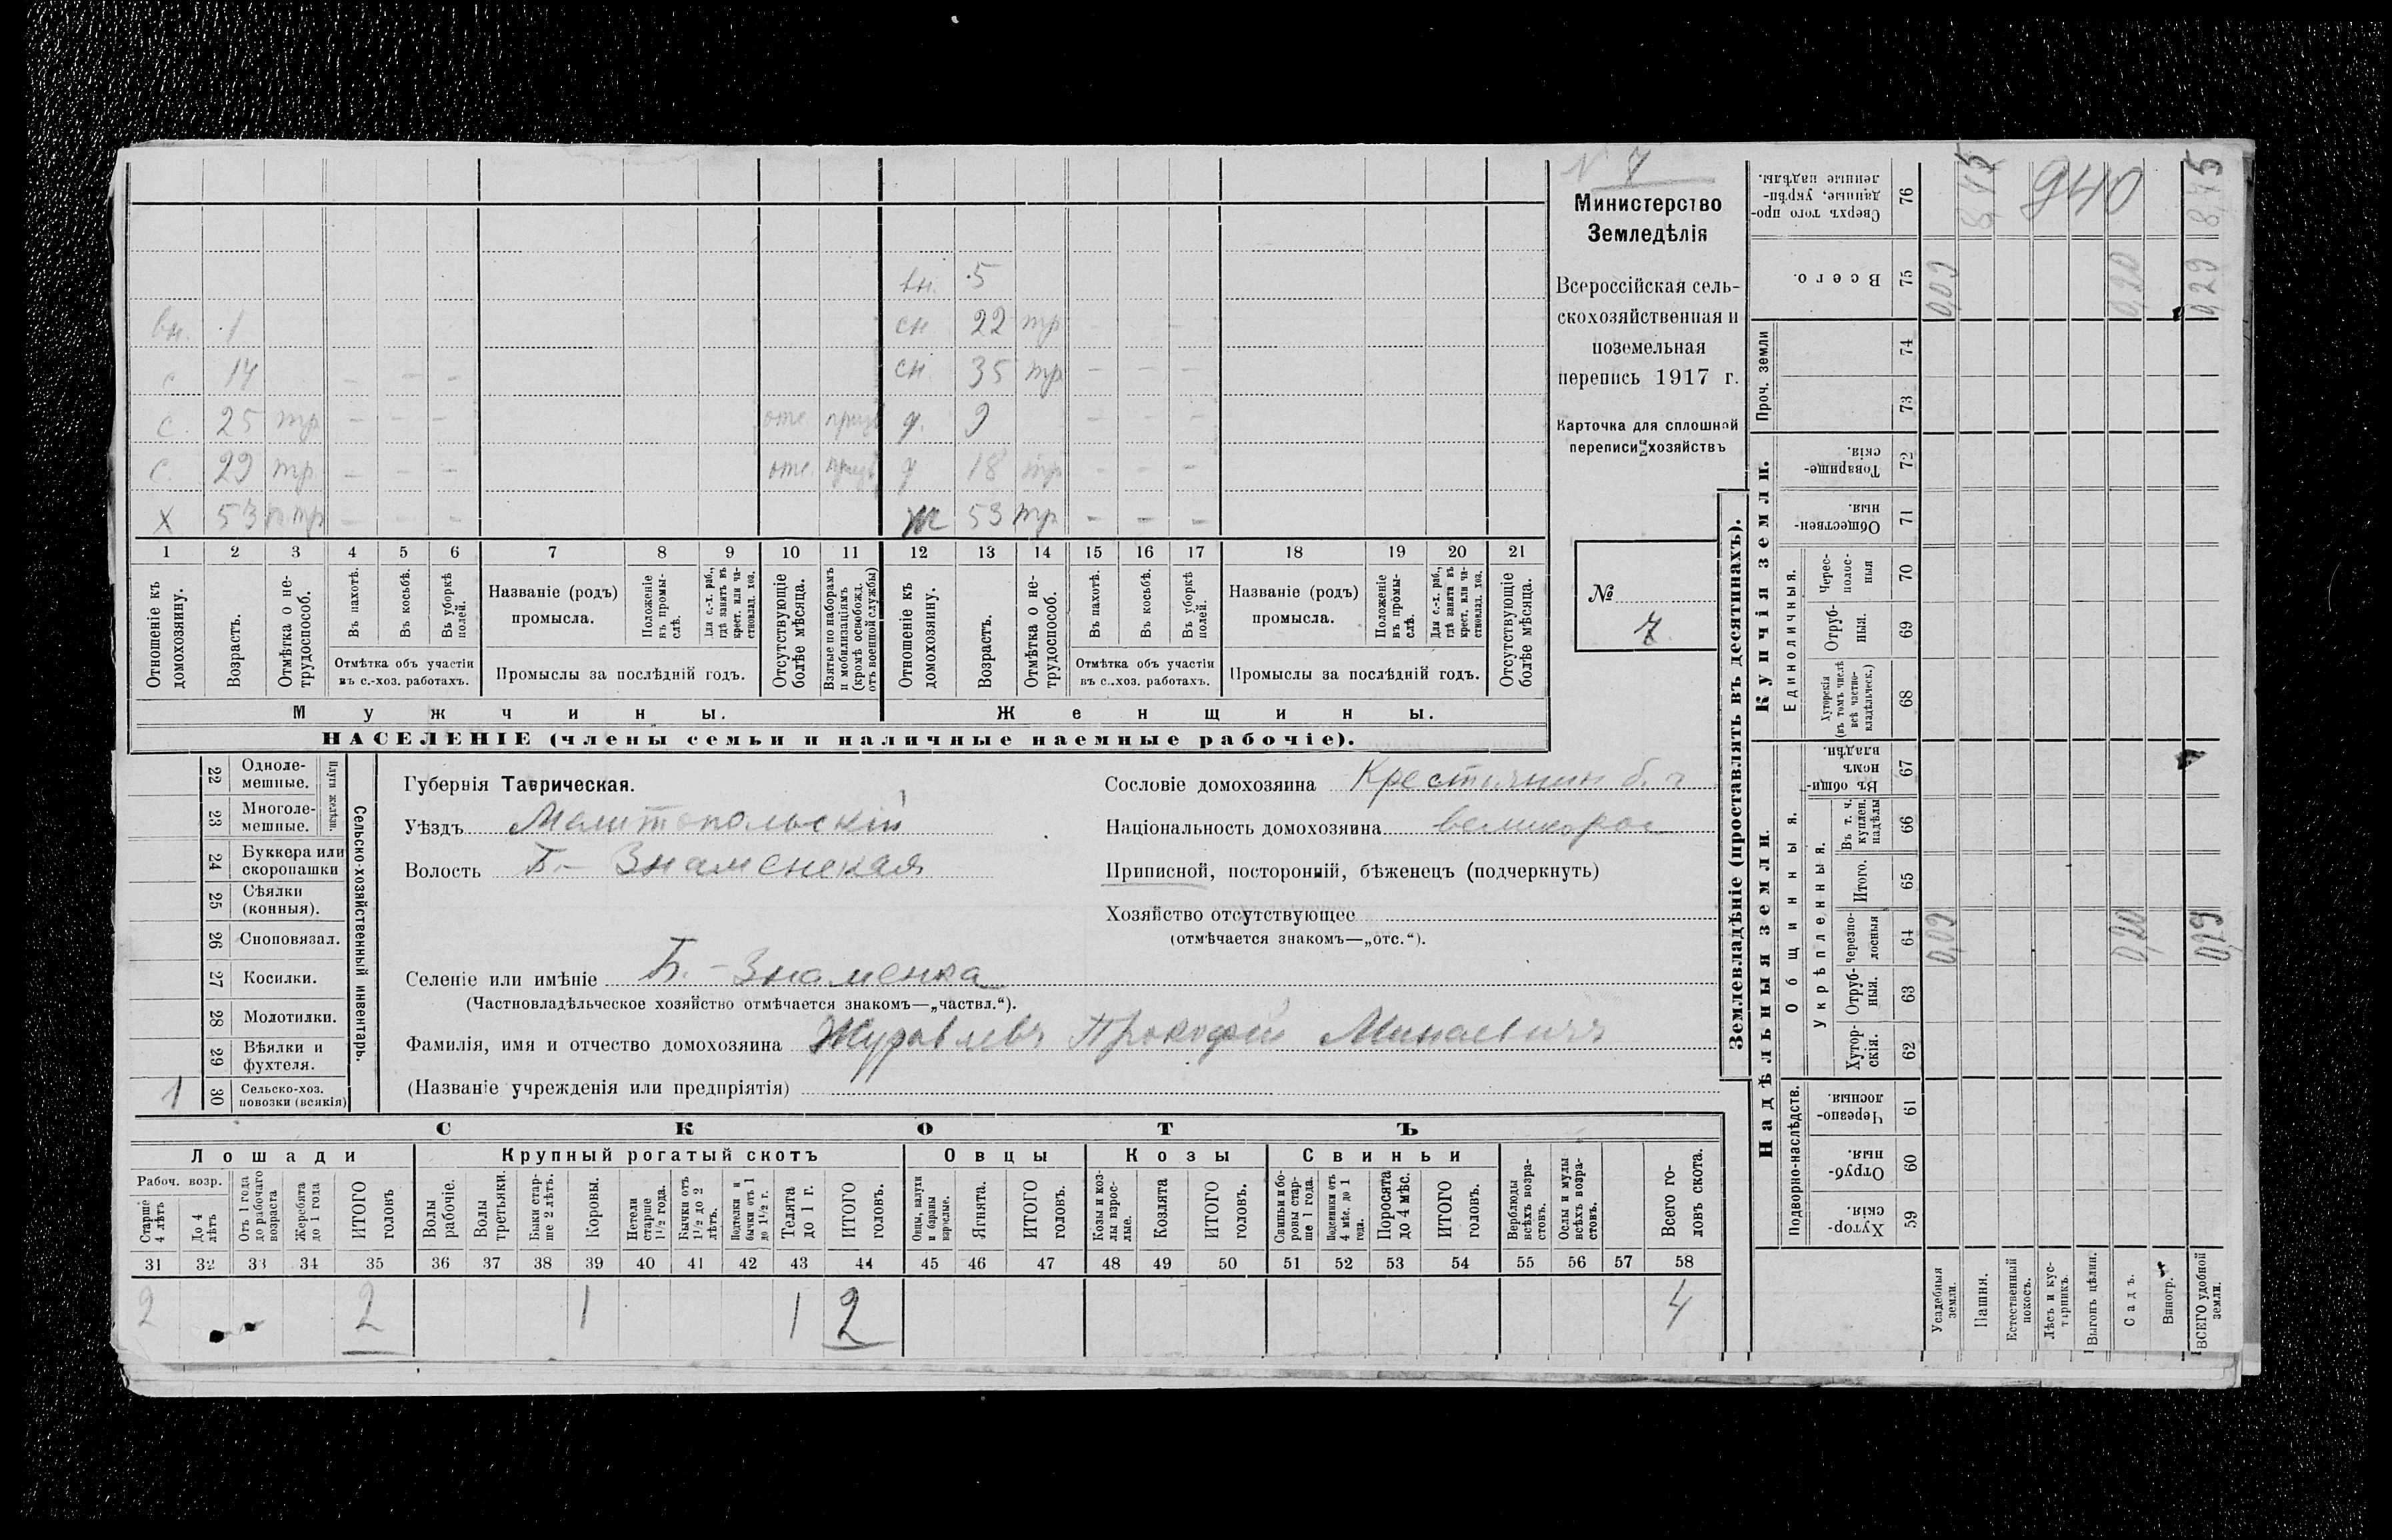 N 7
Министерство
Земледѣлія
Всероссійская сель-
скохозяйственная и
поземельная
перепись 1917 г.
Карточка для сплошной
переписи хозяйствъ
№
7
вн. 5
вн. 1 сн 22 тр - -
с 14 - - - сн. 35 тр - - -
с. 25 тр - - - отс. призв д. 9 - - -
с. 29 тр. - - - отс. призв д 18 тр - - -
х 53 п тр - - - ж 53 тр - - -
1 2 3 4 5 6 7 8 9 10 11 12 13 14 15 16 17 18 19 20 21
Отношеніе къ домохозяину.
Возрастъ.
Отмѣтка о не-трудоспособ.
Въ пахотѣ.
Въ косьбѣ.
Въ уборкѣ полей.
Отмѣтка объ участіи
въ с.-хоз. работахъ.
Названіе (родъ)
промысла.
Положеніе въ промы-слѣ.
Для с.-х. раб., гдѣ занятъ въ крест. или ча-стновлад. хоз.
Промыслы за послѣдній годъ.
Отсутствующіе болѣе мѣсяца.
Взятые по наборамъ и мобилизаціямъ (кромѣ освобожд. отъ военной службы)
Отношеніе къ домохозяину.
Возрастъ.
Отмѣтка о не-трудоспособ.
Въ пахотѣ.
Въ косьбѣ.
Въ уборкѣ полей.
Отмѣтка объ участіи
въ с.-хоз. работахъ.
Названіе (родъ)
промысла.
Положеніе въ промы-слѣ.
Для с.-х. раб., гдѣ занята въ крест. или ча-стновлад. хоз.
Промыслы за послѣдній годъ.
Отсутствующіе болѣе мѣсяца.
Мужчины. Женщины.
НАСЕЛЕНІЕ (члены семьи и наличные наемные рабочіе).
22 Одноле-мешные.
23 Многоле-мешные.
Плуги желѣзн.
24 Буккера или скоропашки
25 Сѣялки (конныя).
26 Сноповязал.
27 Косилки.
28 Молотилки.
29 Вѣялки и фухтеля.
1 30 Сельско-хоз. повозки (всякія)
Сельско-хозяйственный инвентарь.
Губернія Таврическая.
Уѣздъ Мелитопольскій
Волость Б - Знаменская
Сословіе домохозяина Крестьянин б. г
Національность домохозяина великорос
Приписной, посторонній, бѣженецъ (подчеркнуть)
Хозяйство отсутствующее
(отмѣчается знакомъ—„отс.“).
Селеніе или имѣніе Б. - Знаменка
(Частновладѣльческое хозяйство отмѣчается знакомъ—„частвл.“).
Фамилія, имя и отчество домохозяина Журавлевъ Прокофій Минаевичъ
(Названіе учрежденія или предпріятія)
СКОТЪ
Лошади Крупный рогатый скотъ Овцы Козы Свиньи
Рабоч. возр.
Старше 4 лѣтъ
До 4 лѣтъ
Отъ 1 года до рабочаго возраста
Жеребята до 1 года
ИТОГО головъ
Волы рабочіе.
Волы третьяки.
Быки стар-ше 2 лѣтъ.
Коровы.
Нетели старше 1½ года.
Бычки отъ 1½ до 2 лѣтъ.
Подтелки и бычки отъ 1 до 1½ г.
Телята до 1 г.
ИТОГО головъ.
Овцы, валухи и бараны взрослые.
Ягнята.
ИТОГО головъ.
Козы и коз-лы взрос-лые.
Козлята
ИТОГО головъ.
Свиньи и бо-ровы стар-ше 1 года.
Подсвинки отъ 4 мѣс. до 1 года.
Поросята до 4 мѣс.
ИТОГО головъ.
Верблюды всѣхъ возра-стовъ.
Ослы и мулы всѣхъ возра-стовъ.
Всего го-ловъ скота.
31 32 33 34 35 36 37 38 39 40 41 42 43 44 45 46 47 48 49 50 51 52 53 54 55 56 57 58
2 2 1 1 2 4
Землевладѣніе (проставлять въ десятинахъ).
Купчія земли.
Надѣльныя земли.
Сверхъ того про-данные, укрѣп-ленные надѣлы. 76 8,45 940 8,45
Всего. 75 0,09 0,20 0,29
Проч. земли
74
73
Товарище-скія. 72
Обществен-ныя. 71
Единоличныя.
Черес-полос-ныя 70
Отруб-ныя. 69
Хуторскія (въ томъ числѣ всѣ частно-владѣльческ.) 68
Общинныя.
Въ общи-номъ владѣн. 67
Укрѣпленныя.
Въ т. ч. куплен. надѣлы 66
Итого. 65
черезпо-лосныя 64 0,09 0,20
Отруб-ныя. 63
Хутор-скія. 62
Подворно-наслѣдств.
Черезпо-лосныя. 61
Отруб-ныя. 60
Хутор-скія. 59
Усадебныя земли.
Пашня.
Естественный покосъ.
Лѣсъ и кус-тарникъ.
Выгонъ цѣлин.
Садъ.
Виногр.
ВСЕГО удобной земли.